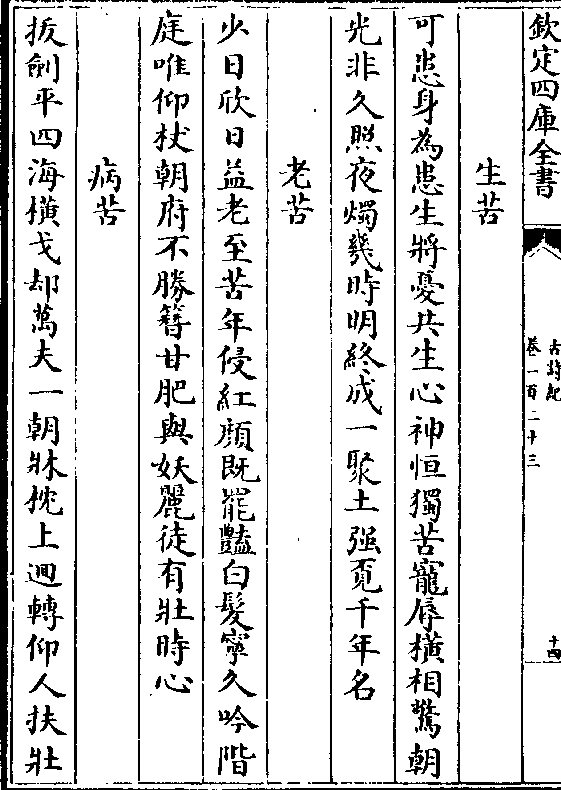 欽定四庫全書
古詩紀
卷一百二十三
十四
生苦
可患身為患生將憂共生心神恒獨苦寵辱橫相驚朝
光非久照夜燭幾時明終成一聚土强覓千年名
老苦
少日欣日益老至苦年侵紅顏既罷豔白髮寧久吟階
庭唯仰杖朝府不勝簪甘肥與妖麗徒有壯時心
病苦
拔劍平四海橫戈却萬夫一朝牀枕上迴轉仰人扶壯